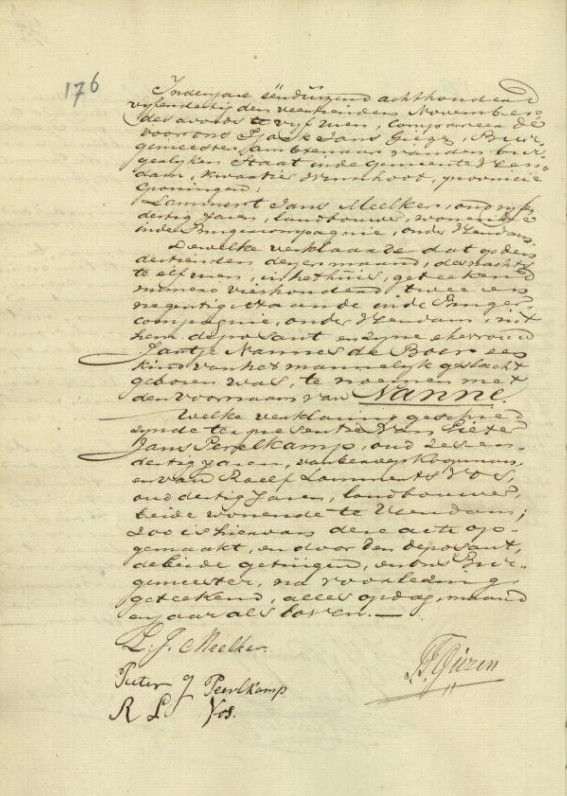 176
In den jare eenduizend achthonderd
vijfendertig den veertienden November
des avonds te vijf uren, compareerde
voor ons Tjaak Jans Giezen, Bur-
gemeester, ambtenaar van den bur-
gerlyken Staat in de gemeente Veen-
dam, kwartier Winschoot, provincie
Groningen;
Lammert Jans Meelker, oud vyf
dertig Jaren, landbouwer, wonende
in de Burgercompagnie, onder Veendam.
Dewelke verklaarde dat op den
dertienden dezer maand, des nachts
te elf uren, in het huis, geteekend
numero vierhonderd twee en
negentig staande in de Burger-
compagnie, onder Veendam, uit
hem deposant en zyne ehevrouw
Jantje Nannes de Boer een
kind van het mannelyk geslacht
geboren was, te noemen met
den voornaam van Nanne.
Welke verklaring geschied
zynde ter presentie van Pieter
Jans Perelkamp, oud zes en
dertig Jaren, van beroep Koopman,
en van Roelf Lammerts Vos,
oud dertig Jaren, landbouwer,
beide wonende te Veendam;
zoo is hiervan deze acte op-
gemaakt, en door den deposant,
de beide getuigen, en ons Bur-
gemeester, na voorlezing
geteekend, alles op dag, maand
en jaar als boven.—
L. J. Meelker
Pieter J Peerlkamp
R L Vos.
Giezen